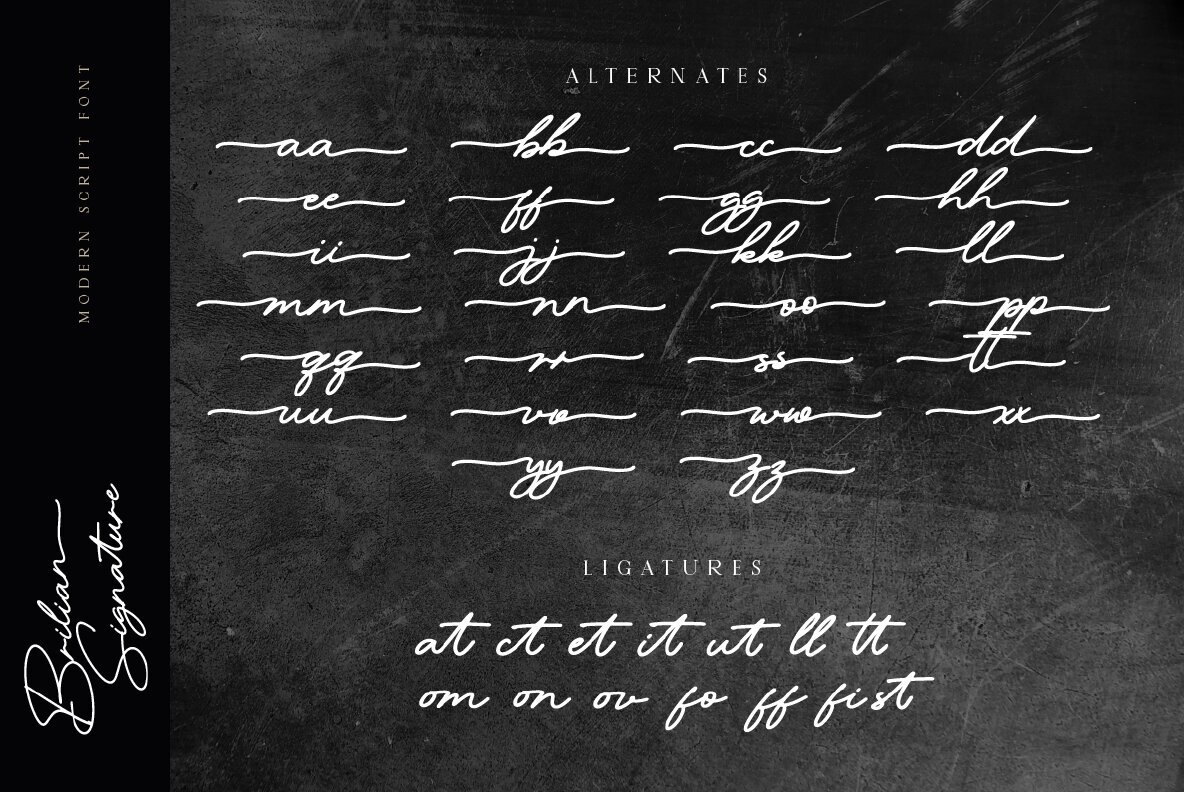 MODERN SCRIPT FONT
Brilian
Signature
ALTERNATES
aa bb cc dd
ee ff gg hh
ii jj kk ll
mm nn oo pp
qq rr ss tt
uu vv ww xx
yy zz
LIGATURES
at ct et it ut ll tt
om on ov fo ff fi st